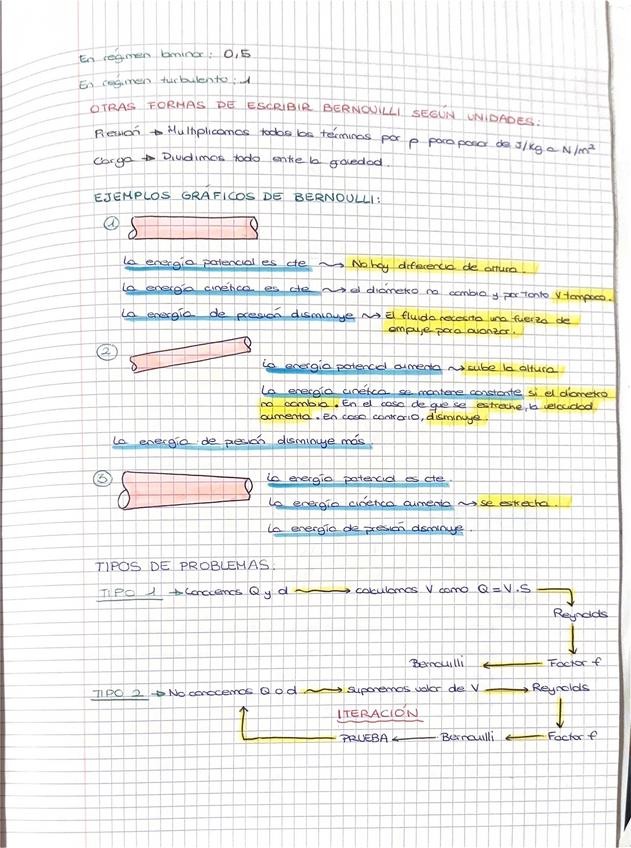 En régimen laminar: 0,5
En régimen turbulento: 1
OTRAS FORMAS DE ESCRIBIR BERNOUILLI SEGÚN UNIDADES:
Presión → Multiplicamos todos los términos por ρ para pasar de J/kg a N/m²
Carga → Dividimos todo entre la gravedad.
EJEMPLOS GRÁFICOS DE BERNOULLI:
①
La energía potencial es cte ⇝ No hay diferencia de altura.
La energía cinética es cte ⇝ el diámetro no cambia y por tanto V tampoco.
La energía de presión disminuye ⇝ El fluido necesita una fuerza de
empuje para avanzar.
②
La energía potencial aumenta ⇝ sube la altura
La energía cinética se mantene constante si el diámetro
no cambia. En el caso de que se estreche, la velocidad
aumenta. En caso contrario, disminuye.
La energía de presión disminuye más
③
La energía potencial es cte.
La energía cinética aumenta ⇝ se estrecha.
La energía de presión disminuye.
TIPOS DE PROBLEMAS:
TIPO 1 → Conocemos Q y d → calculamos V como Q = V·S
Reynolds
Bernouilli ← Factor f
TIPO 2 → No conocemos Q o d → suponemos valor de V → Reynolds
ITERACIÓN
PRUEBA ← Bernouilli ← Factor f